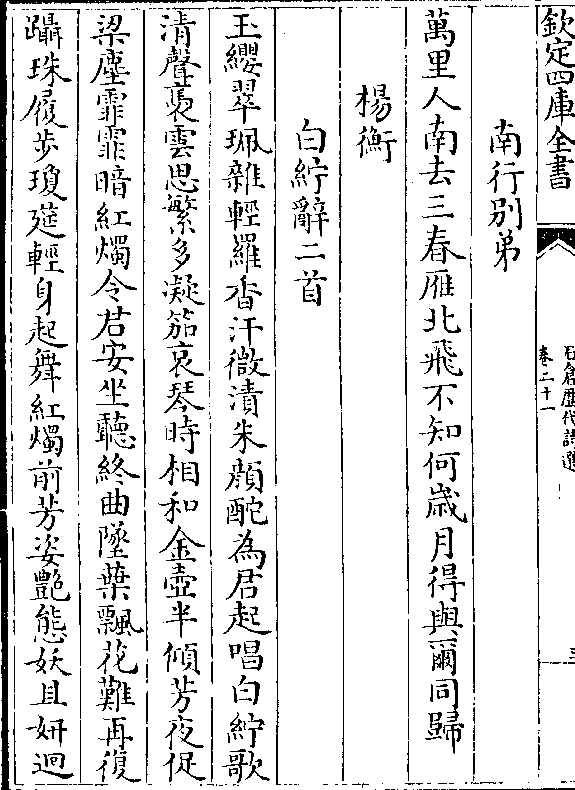 欽定四庫全書
石倉歷代詩選
卷二十一
三
南行別弟
萬里人南去三春雁北飛不知何歲月得與爾同歸
楊衡
白紵辭二首
玉纓翠珮雜輕羅香汗微漬朱顔酡為君起唱白紵歌
清聲裊雲思繁多凝笳哀琴時相和金壺半傾芳夜促
梁塵霏霏暗紅燭令君安坐聽終曲墜葉飄花難再復
躡珠履步瓊筵輕身起舞紅燭前芳姿艷態妖且妍迴